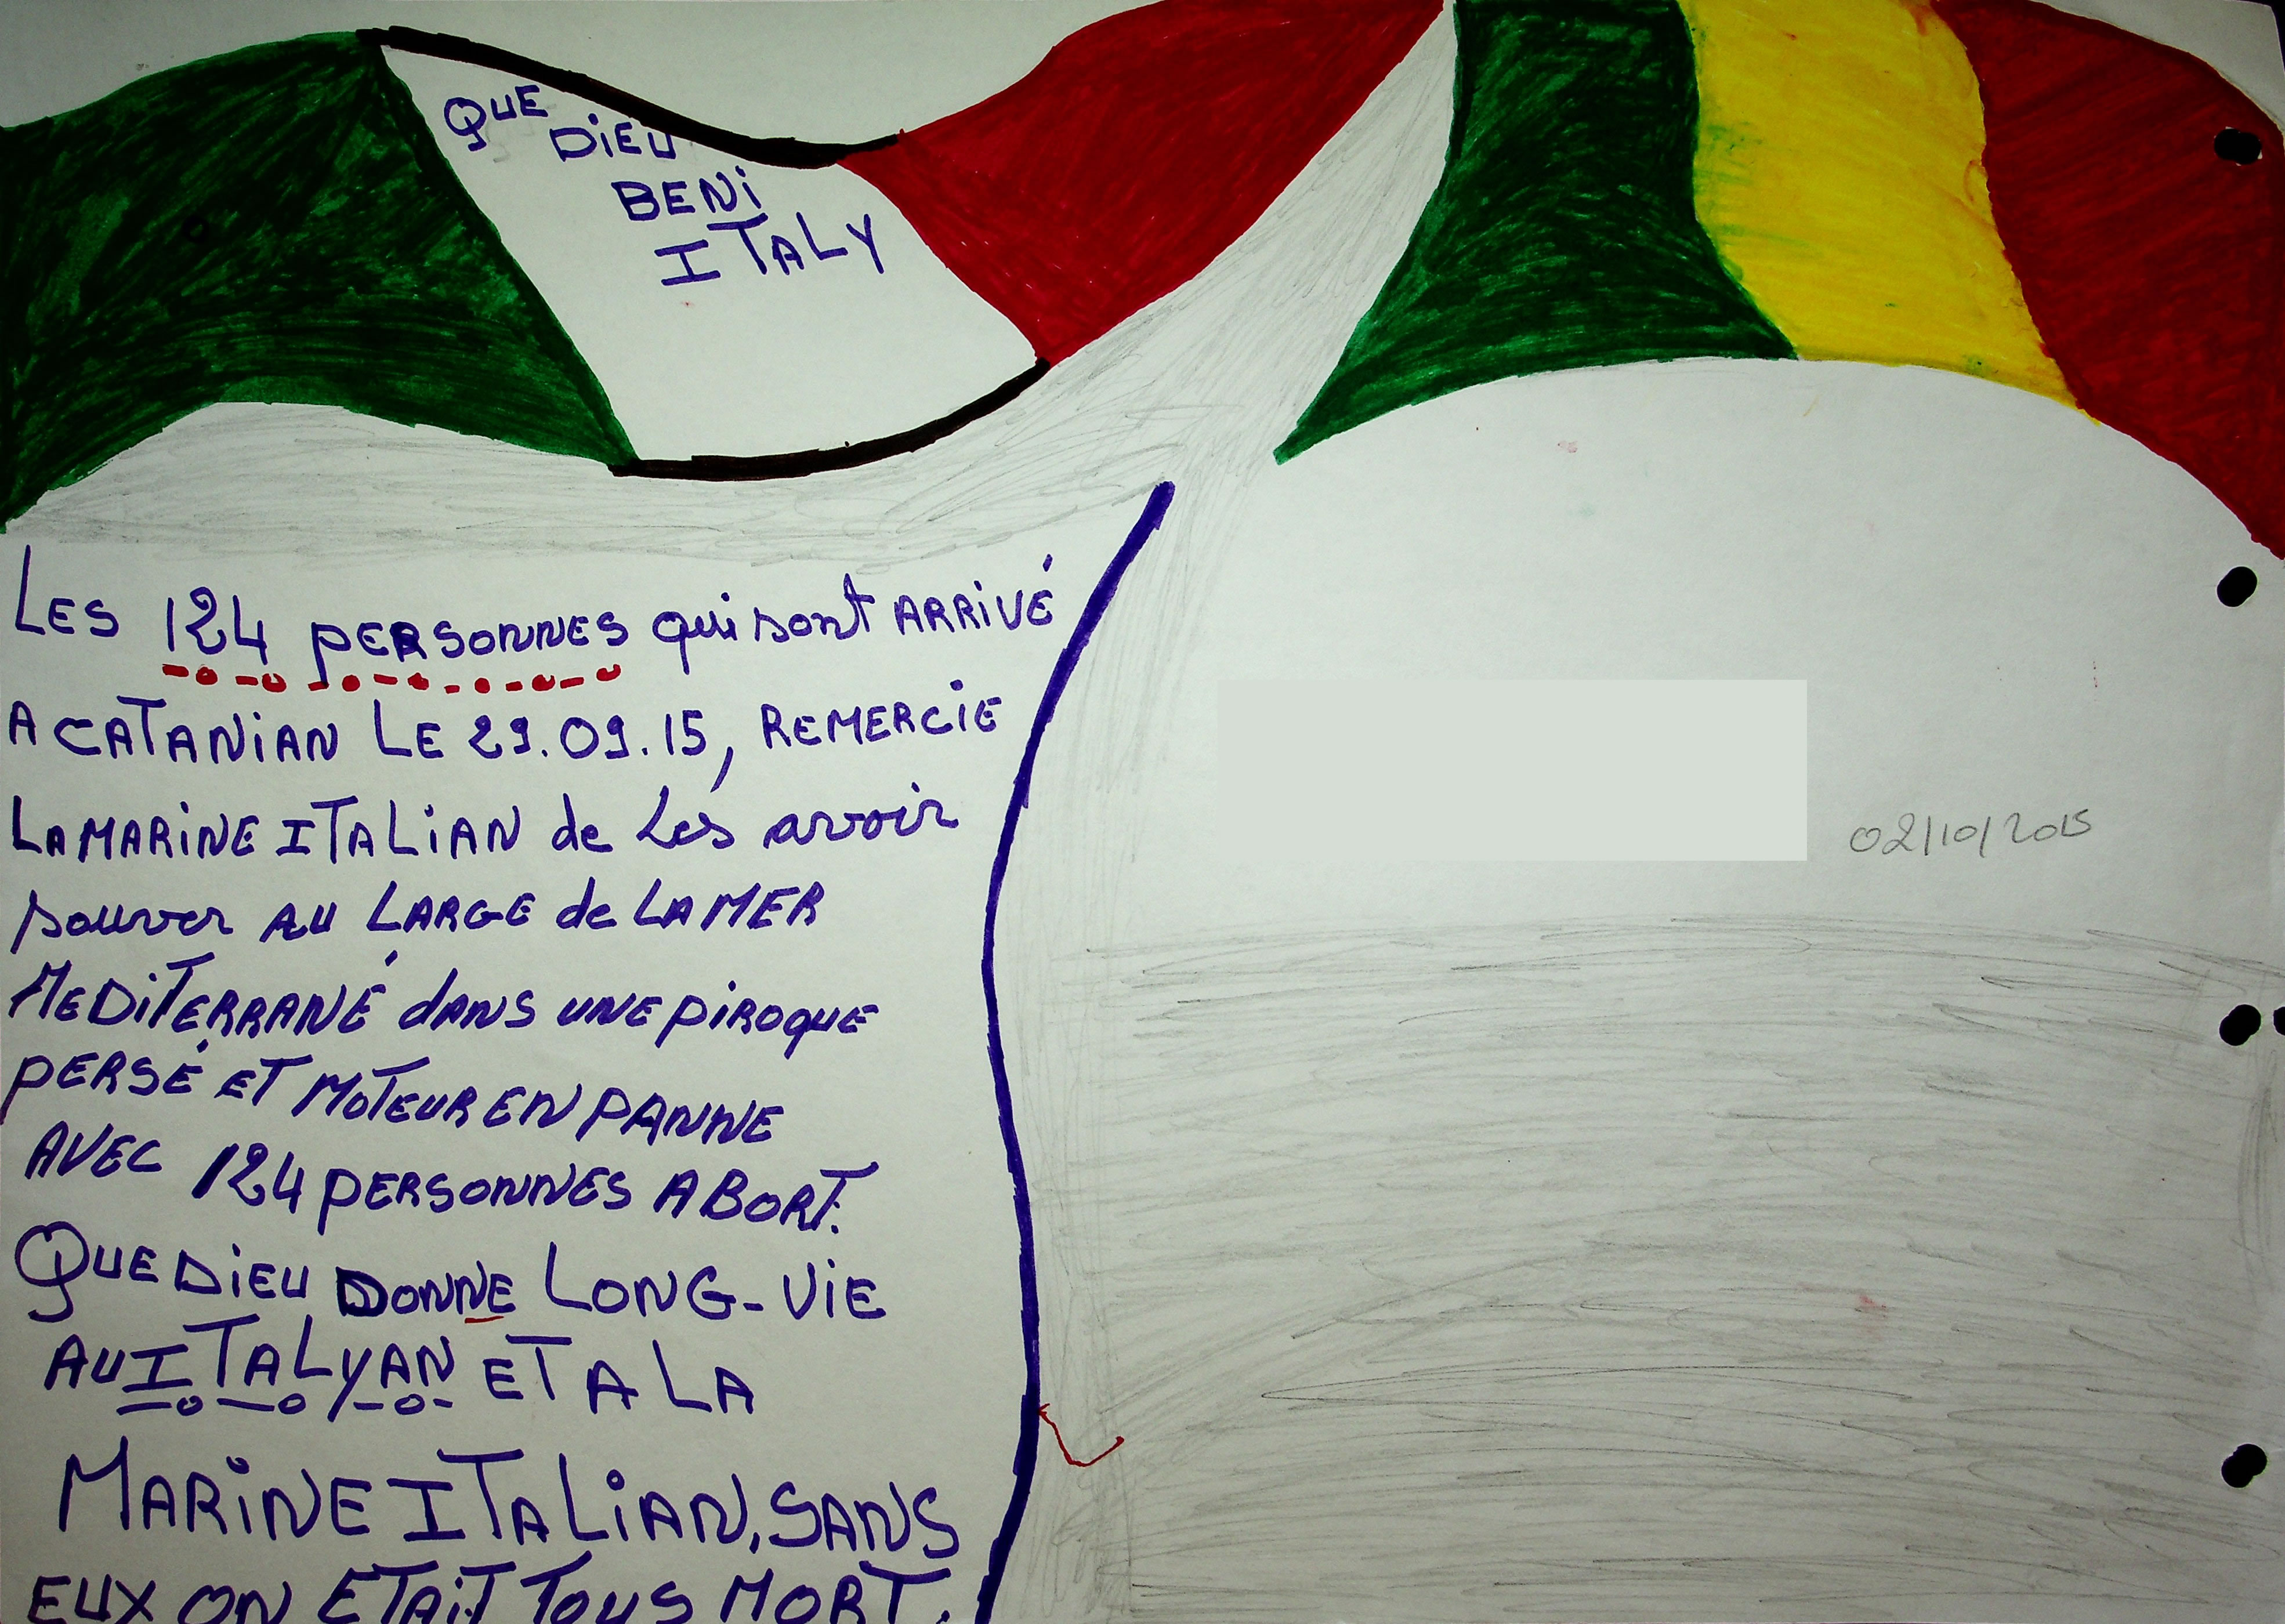 QUE
DIEU
BENI
ITALY
LES 124 PERSONNES qui sont ARRIVÉ
A CATANIAN LE 29.09.15, REMERCIE
LA MARINE ITALIAN de Les avoir
sauver AU LARGE de LA MER
MEDITERRANÉ dANS UNE PIROQUE
PERSÉ ET MOTEUR EN PANNE
AVEC 124 PERSONNES A BORT.
QUE DIEU DONNE LONG-VIE
AU ITALYAN ET A LA
MARINE ITALIAN, SANS
EUX ON ETAIT TOUS MORT.
02/10/2015